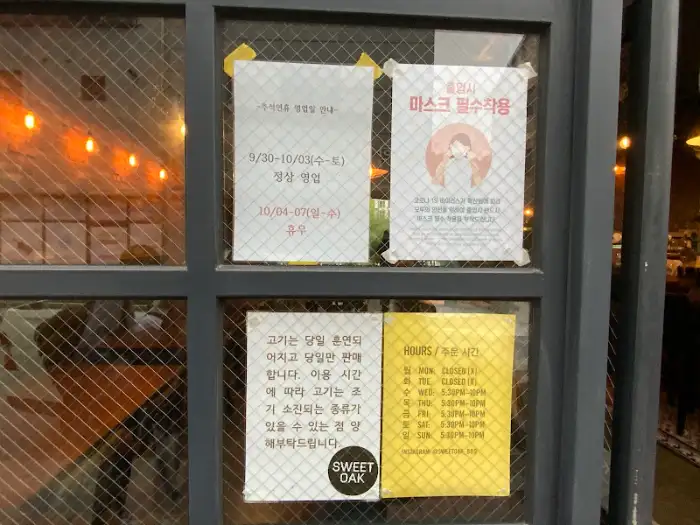 -추석연휴 영업일 안내-
9/30-10/03(수-토)
정상 영업
10/04-07(일-수)
휴무
출입시
마스크 필수착용
모두의 안전을 위하여 출입시 반드시
마스크 착용을 부탁드립니다.
고기는 당일 훈연되
어지고 당일만 판매
합니다. 이용 시간
에 따라 고기는 조
기 소진되는 종류가
있을 수 있는 점 양
해부탁드립니다.
SWEET
OAK
HOURS / 주문 시간
월 MON. CLOSED (X)
화 TUE. CLOSED (X)
수 WED. 5:30PM-10PM
목 THU. 5:30PM-10PM
금 FRI. 5:30PM-10PM
토 SAT. 5:30PM-10PM
일 SUN. 5:30PM-10PM